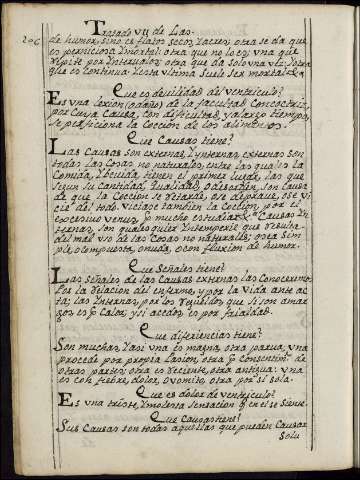 206
Tratado VII de Las-
de humor, sino es flatos secos, Y acres; otra se da que
es perniciosa Y mortal: otra que no lo es, y una que
repite por Intervalos; otra que da solo una vez, Y otra
que es Continua: Y esta ultima Suele Ser mortal.
Que es devilidad del ventriculo?
Es una lexion (o daño) de la facultad Concoctriz,
por cuya Causa, con dificultad, y a largo tiempo,
Se perficiona la Coccion de los alimentos.
Que Causas tiene?
Las Causas son externas, Y Ynternas, externas son
todas las Cosas no naturales, entre las quales la
Comida, Y bevida, tienen el primer lugar, las que
segun su Cantidad, Qualidad, O desorden, son Causa
de que la Coccion se retarde, o se deprave, o se vi
cie del todo. Viciase tambien la Coccion, por el
excesivo venus, por mucho estudiar. Causas In
ternas, son qualesquier Intemperie que resulta
del mal uso de las Cosas no naturales; o sea Sim
ple, o Compuesta, o nuda, o Con fluxion de humor.
Que Señales tiene?
Las Señales de las Causas externas las Conoceremos
Por la relacion del enfermo, y por la Vida ante ac
ta; las Internas, por los regueldos que Si son amar
gos es por Calor, y si acedos es por frialdad.
Que diferiencias tiene?
Son muchas, Y asi una es magna, otra parva; una
procede por propia lasion, otra por Consentimto. de
otras partes; otra es reciente, otra antigua: una
es con fiebre, dolor, o vomito, otra por si sola.
Que es dolor de ventriculo?
Es una triste, Y molesta Sensacion q en el se Siente.
Que Causas tiene?
Sus Causas son todas aquellas que pueden Causar
Solu